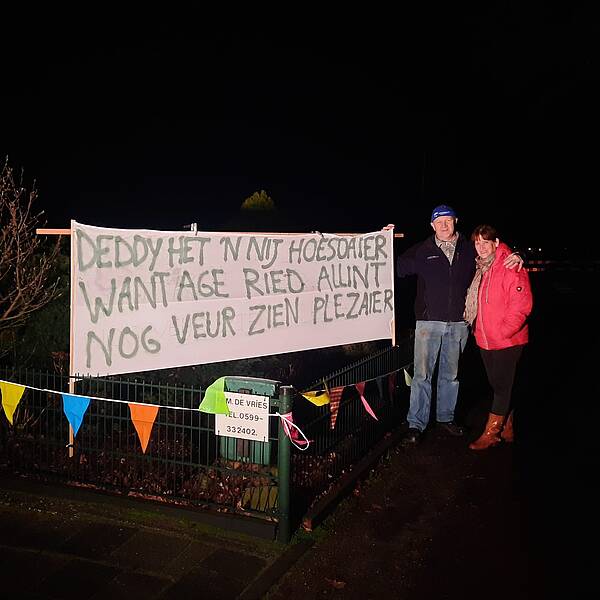 DEDDY HET 'N NIJ HOESDAIER
WANT AGE RIED ALLINT
NOG VEUR ZIEN PLEZAIER
M. DE VRIES
TEL.0599-
332402.